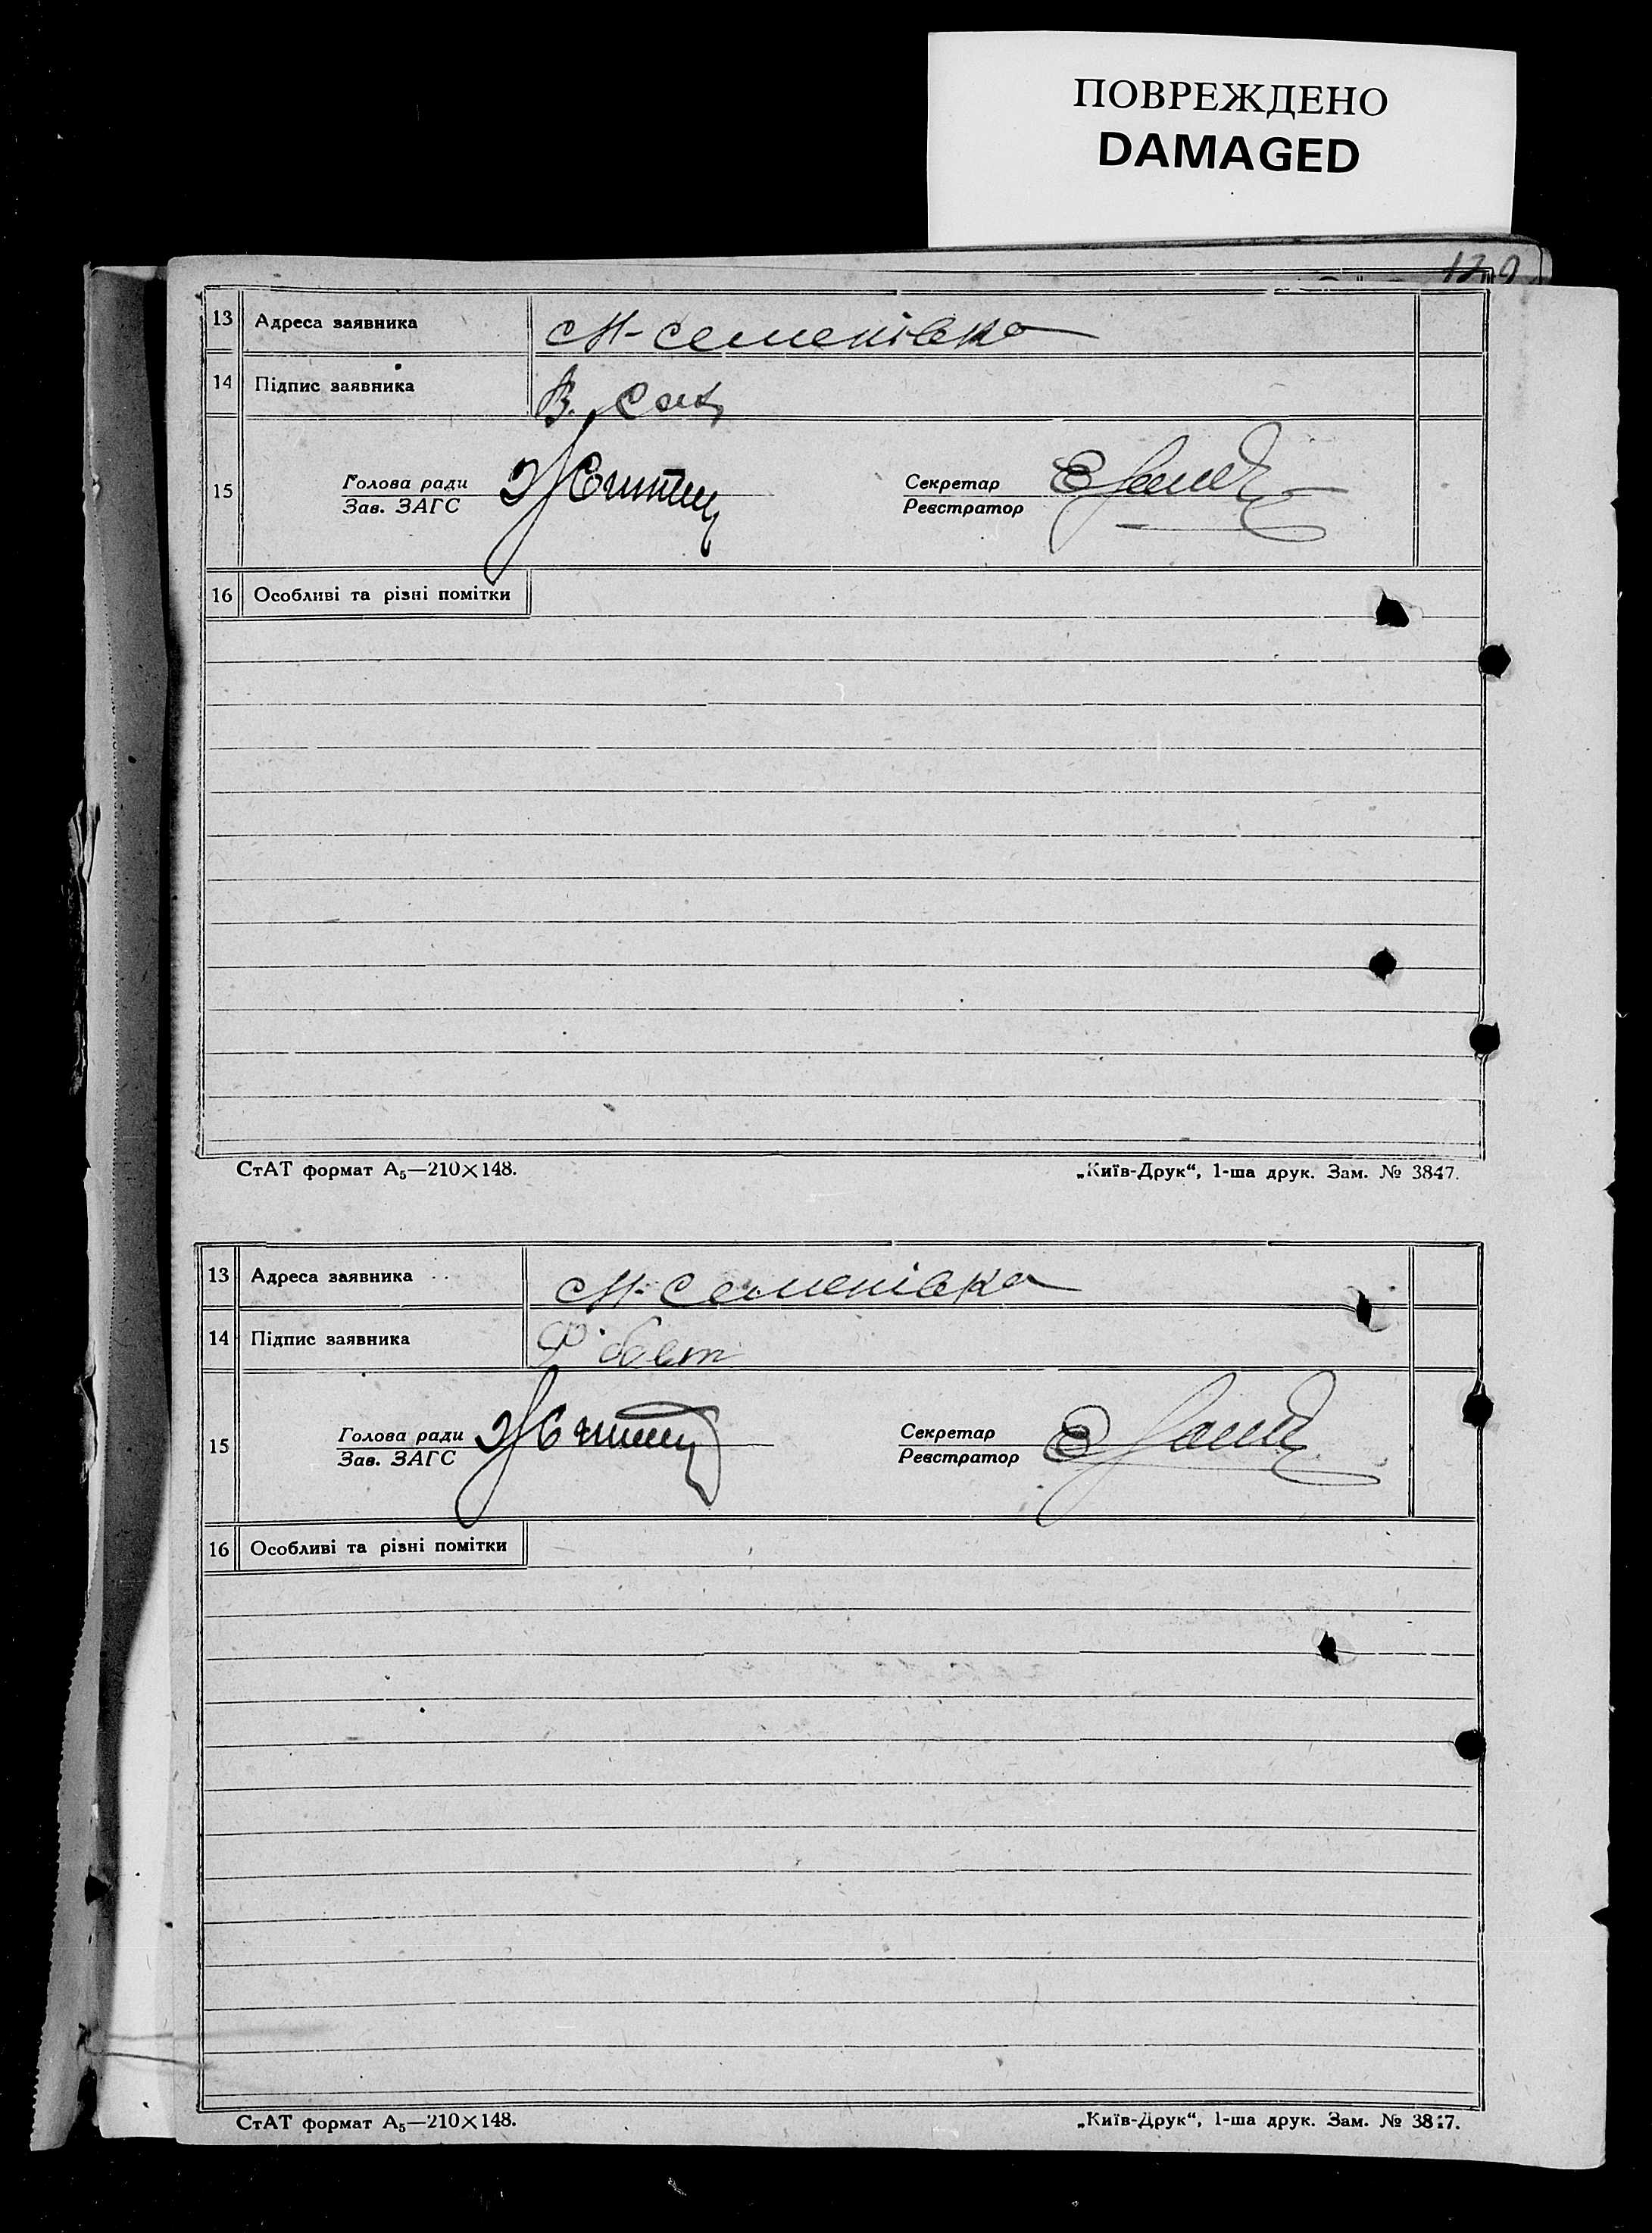 ПОВРЕЖДЕНО
DAMAGED
13 Адреса заявника м-семенівка
14 Підпис заявника В.
15 Голова ради Секретар
Зав. ЗАГС Реєстратор
16 Особливі та різні помітки
СтАТ формат А5—210×148. „Київ-Друк“, 1-ша друк. Зам. № 3847.
13 Адреса заявника м-Семенівка
14 Підпис заявника
15 Голова ради Секретар
Зав. ЗАГС Реєстратор
16 Особливі та різні помітки
СтАТ формат А5—210×148. „Київ-Друк“, 1-ша друк. Зам. № 3847.